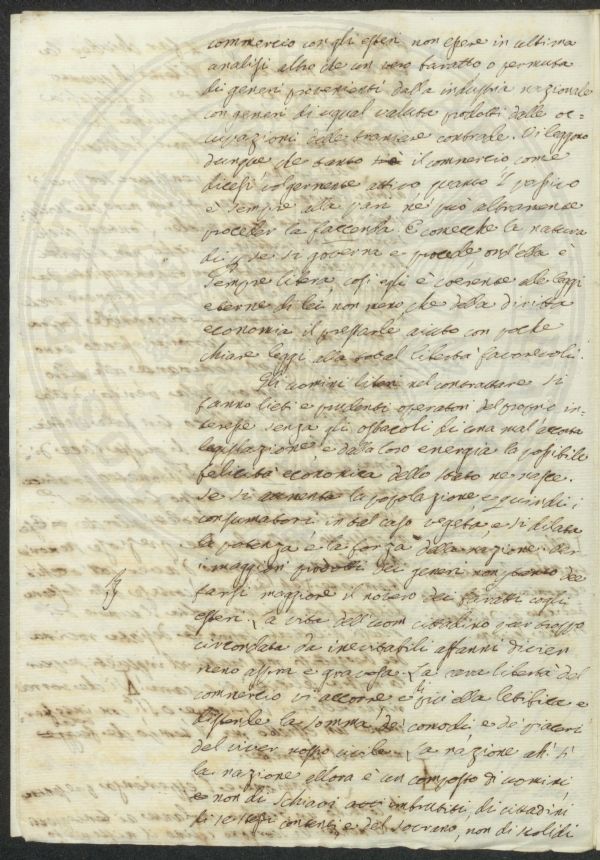 commercio con gli esteri non essere in ultima
analisi altro che un vero baratto o permuta
di generi provenienti dalla industria nazionale
con generi di egual valuta prodotti dalle oc-
cupazioni delle straniere contrade. Si leggono
dunque che tanto il commercio, come
dicesi volgarmente attivo quanto il passivo
è sempre alla pari ne può altramente
proceder la faccenda. E comecche la natura
di per se si governa e procede ond'ella è
sempre libera, così egli è coerente alle leggi
eterne di lei non meno, che della diritta
economia il prestarle aiuto con poche
chiare leggi alla total libertà favorevoli.
Gli uomini liberi nel contrattare si
fanno lieti e prudenti operatori del proprio in-
teresse senza gli ostacoli di una mal'accorta
legislazione, e dalla loro energia la possibile
felicità economica dello stato ne nasce.
Se si aumenta la popolazione, e quindi i
consumatori in tal caso vegeta, e si dilata
la potenza e la forza della nazione. Per
i maggiori prodotti dei generi non
farsi maggiore il novero dei baratti cogli
esteri. La vita dell'uom cittadino pur troppo
circondata da inevitabili affanni divien
meno aspra e gravosa. La vera libertà del
commercio vi accorre e più ella letifica e
distende la somma dei comodi e de' piaceri
del viver nostro civile. La nazione ah! sì
la nazione allora è un composto di uomini
e non di schiavi avviliti, di cittadini
di se stessi contenti e del sovrano, non di stolidi